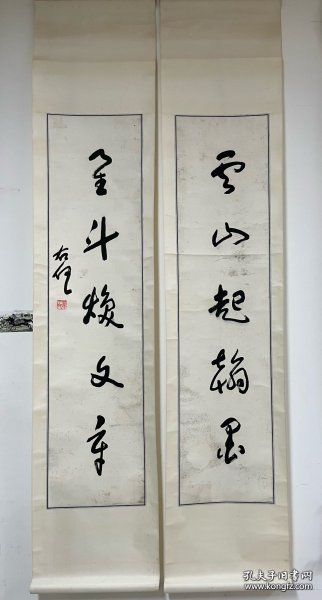 云山起翰墨
星斗焕文章
右任
孔夫子旧书网